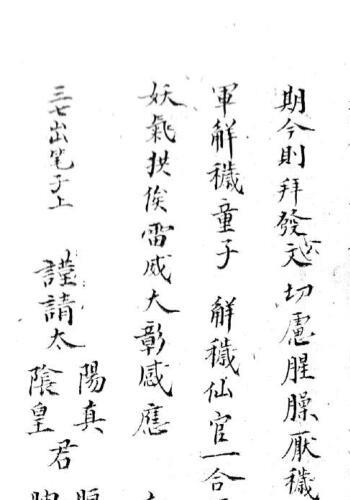 期今則拜發文切慮腥臊厭穢
軍解穢童子 解穢仙官一合
妖氣拱俟雷威大彰感應
三七出笔子上 謹請太
陽真
陰皇
君